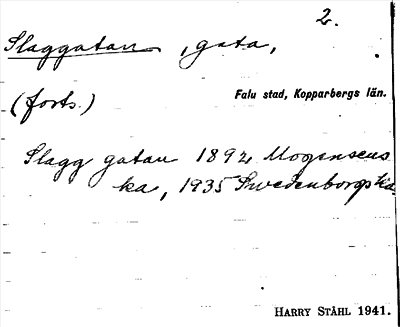 2.
Slaggatan, gata,
(forts.)
Falu stad, Kopparbergs län.
Slagg gatan 1892 Mogensens
ka, 1935 Swedenborgska
HARRY STÅHL 1941.